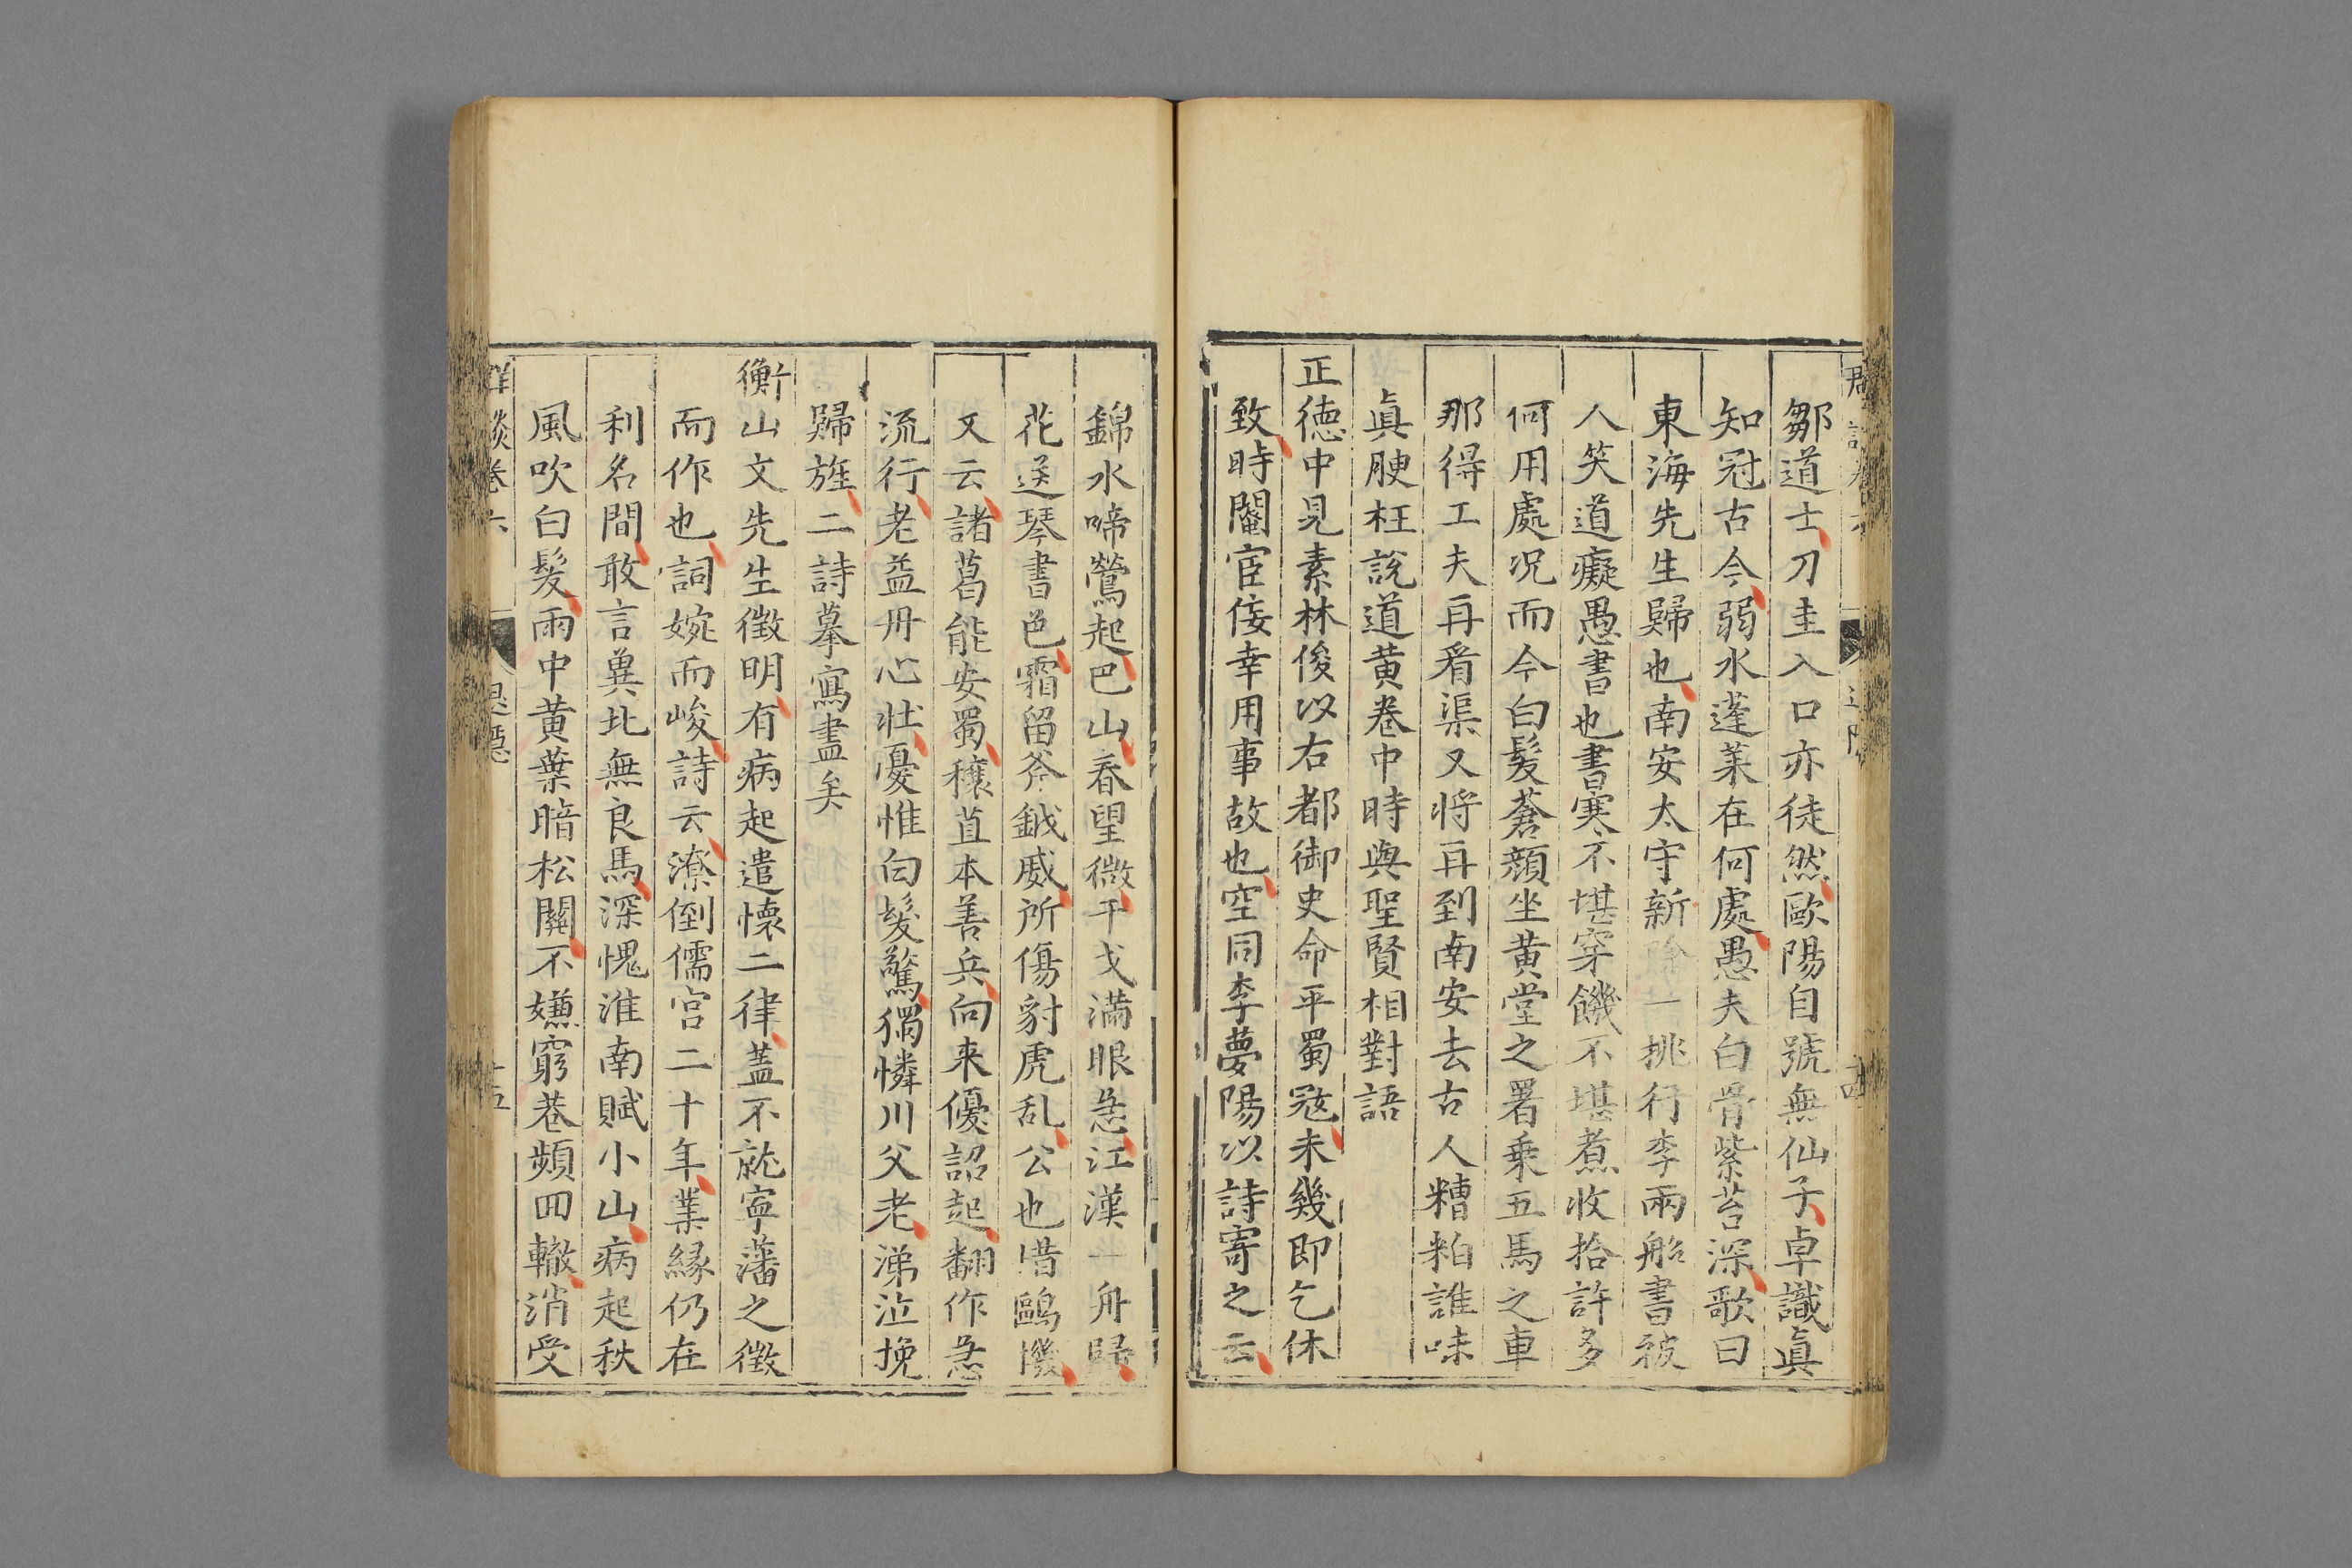 鄒道士刀圭入口亦徒然歐陽自號無仙子卓識眞
知冠古今弱水蓬萊在何處愚夫白骨紫苔深歌曰
東海先生歸也南安太守新除一挑行李兩船書被
人笑道癡愚書也書寒不堪穿饑不堪煮收拾許多
何用處况而今白髮蒼顏坐黄堂之署乗五馬之車
那得工夫再看渠又将再到南安去古人糟粕誰味
眞腴枉說道黄卷中時與聖賢相對語
正德中見素林俊以右都御史命平蜀冦未幾即乞休
致時閹宦佞幸用事故也空同李夢陽以詩寄之云
錦水啼鶯起巴山春望微干戈满眼急江漢一舟歸
花送琴書色霜留斧鉞威所傷豺虎乱公也惜鷗機
又云諸葛能安蜀穰苴本善兵向来優詔起翻作急
流行老益丹心壯憂惟白髮驚獨憐川父老涕泣挽
歸旌二詩摹寫盡矣
衡山文先生徴明有病起遣懷二律蓋不就寧藩之徴
而作也詞婉而峻詩云潦倒儒宫二十年業緣仍在
利名間敢言冀北無良馬深愧淮南賦小山病起秋
風吹白髮雨中黄葉暗松關不嫌窮巷頻回轍消受
羣談卷六
退隱
十五